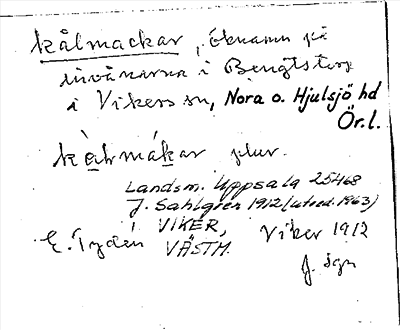 kålmackar, öknamn på
invånarna i Bengtstorp
i Vikers sn, Nora o. Hjulsjö hd
Ör.l.
kålmákar plur.
Landsm. Uppsala 25468
J. Sahlgren 1912 (utred. 1963)
VIKER,
E. Tydén VÄSTM. Viker 1912
J. Sgn